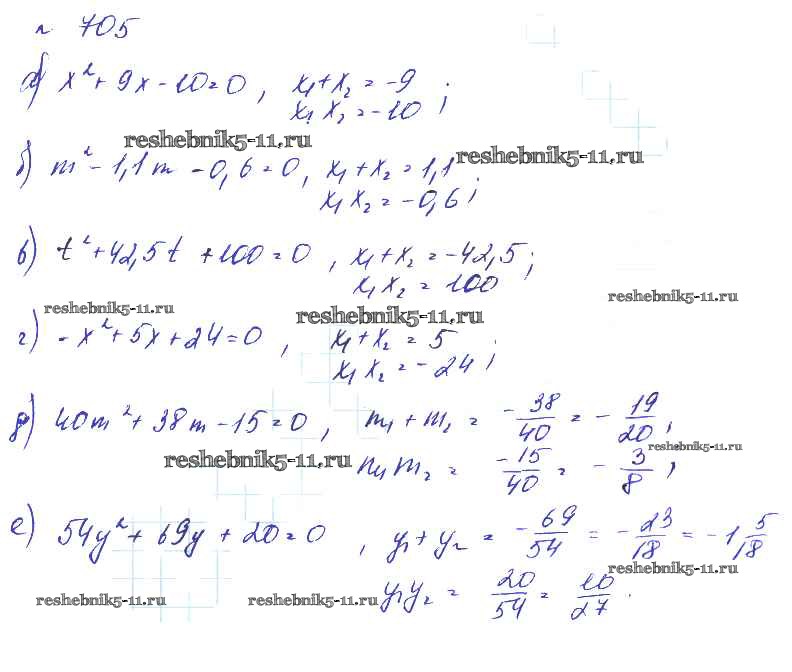 № 705
а) x² + 9x - 10 = 0, x₁ + x₂ = -9
x₁ x₂ = -10 ;
reshebnik5-11.ru
б) m² - 1,1m - 0,6 = 0, x₁ + x₂ = 1,1
reshebnik5-11.ru
x₁ x₂ = -0,6 ;
в) t² + 42,5t + 100 = 0, x₁ + x₂ = -42,5 ;
x₁ x₂ = 100
reshebnik5-11.ru reshebnik5-11.ru reshebnik5-11.ru
г) -x² + 5x + 24 = 0, x₁ + x₂ = 5
x₁ x₂ = -24 ;
д) 40m² + 38m - 15 = 0, m₁ + m₂ = -38/40 = -19/20 ;
reshebnik5-11.ru
reshebnik5-11.ru m₁ m₂ = -15/40 = -3/8 ;
е) 54y² + 69y + 20 = 0, y₁ + y₂ = -69/54 = -23/18 = -1 5/18
reshebnik5-11.ru
y₁ y₂ = 20/54 = 10/27.
reshebnik5-11.ru reshebnik5-11.ru